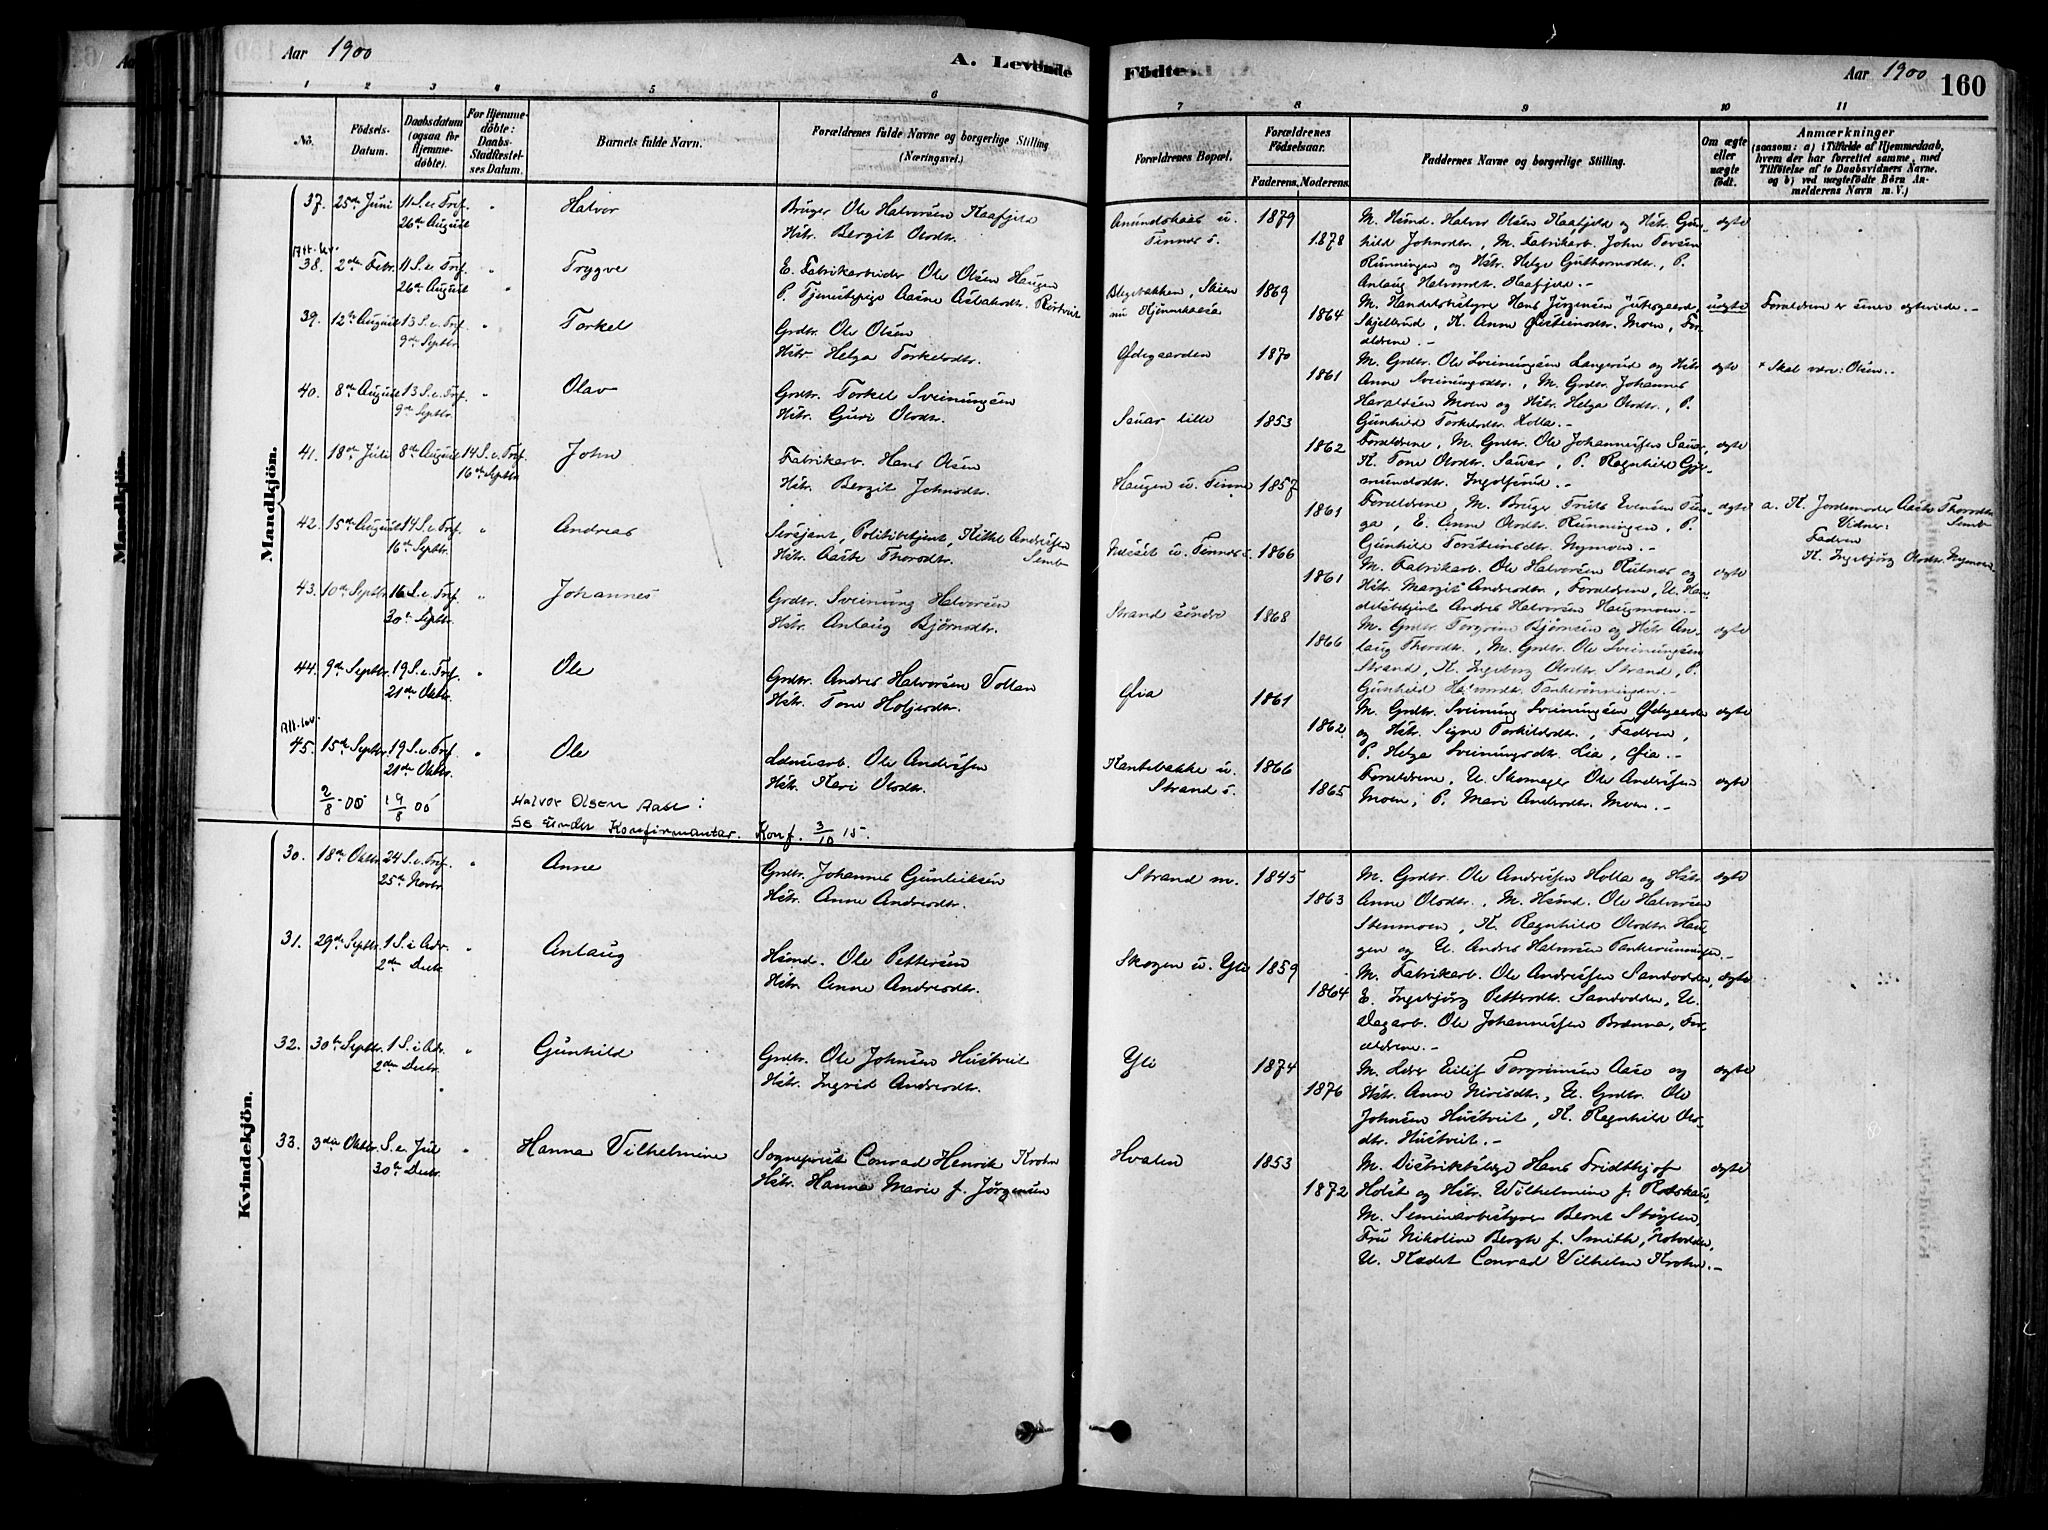 Aar 1900
A. Levende
Fødte.
Aar 1900
160
1 2 3 4 5 6 7 8 9 10 11
No.
Fødsels-
Datum.
Daabsdatum
(ogsaa for
Hjemme-
døbte).
For Hjemme-
døbte:
Daabs-
Stadfæstel-
ses Datum.
Barnets fulde Navn.
Forældrenes fulde Navne og borgerlige Stilling
(Næringsvei.)
Forældrenes Bopæl.
Forældrenes
Fødselsaar.
Faderens. Moderens.
Faddernes Navne og borgerlige Stilling.
Om ægte
eller
uægte
født.
Anmærkninger
(saasom: a) i Tilfælde af Hjemmedaab,
hvem der har forrettet samme, med
Tilføielse af to Daabsvidners Navne,
og b) ved uægtefødte Børn An-
melderens Navn m. V.)
Mandkjön.
37. 25de Juni 11 S. e. Tref. " Halvor
26de August
Bruger Ole Halvorsen Kaafjeld
Hstr. Bergit Olsdtr.
Tinnes s.
1879
1878
M. Hsmd. Halvor Olsen Kaafjeld og Hstr. Gun-
hild Johnsdtr., M. Fabrikarb. John
Rünningen og Hstr. Helge Guthormsdtr., P.
Anlaug Halvorsdtr. Kaafjeld.-
ægte
Att. lev.
38. 2den Febr. 11 S. e. Tref. " Trygve
26de August "
E. Fabrikarbeider Ole Olsen Haugen
P. Tjenestepige Aasne Aslaksdtr. Rørtveit
Blegebakken, Skien
1869
1864
M. Handelsbestyrer Hans Jørgensen
Skjelbred, K. Anne Øisteinsdtr. Moen, For-
ældrene.-
uægte
Forældrene er senere ægteviede.-
39. 12te August 13 S. e. Tref. " Torkel
9de Septbr.
Grdbr. Ole Olsen
Hstr. Helga Torkelsdtr.
Ødegaarden
1870
1861
M. Grdbr. Ole Sveinungsen Langerud og Hstr.
Anne Sveinungsdtr., M. Grdbr. Johannes
Haraldsen Moen og Hstr. Helga Olsdtr., P.
Gunhild Torkelsdtr. Holla.-
ægte
* Skal være: Olsen.-
40. 8de August 13 S. e. Tref. " Olav
9de Septbr.
Grdbr. Torkel Sveinungsen
Hstr. Guri Olsdtr.
Sauar lille
1853
1862
Forældrene, M. Grdbr. Ole Johannessen Sauar,
K. Tone Olsdtr. Sauar, P. Ragnhild
Ingolfsrud.-
ægte
41. 18de Juli 8de August 14 S. e. Tref. John
16de Septbr.
Fabrikarb. Hans Olsen
Hstr. Bergit Johnsdtr.
Haugen u. Tinne
1857
1861
Forældrene, M. Bruger Truls Evensen
E. Anne Olsdtr. Rünningen, P.
Gunhild Torsteinsdtr. Nymoen.-
ægte
a. K. Jordemoder Aaste Thorsdtr.
Semb
Vidner:
Fadren
K. Ingebjørg Olsdtr. Nymoen
42. 15de August 14 S. e. Tref. " Andreas
16de Septbr.
Sersjant, Politibetjent, Kittel Andersen
Hstr. Aaste Thorsdtr. Semb
Næsset u. Tinnes s.
1866
1861
M. Fabrikarb. Ole Halvorsen og
Hstr. Margit Andersdtr., Forældrene, U. Han-
delsbetjent Andres Halvorsen Haugmoen.-
ægte
43. 10de Septbr. 16 S. e. Tref. " Johannes
30te Septbr.
Grdbr. Sveinung Halvorsen
Hstr. Anlaug Bjørnsdtr.
Strand søndre
1868
1866
M. Grdbr. Torgrim Bjørnsen og Hstr. An-
laug Thorsdtr., M. Grdbr. Ole Sveinungsen
Strand, K. Ingeborg Olsdtr. Strand, P.
Gunhild Tankerünningen.-
ægte
44. 9de Septbr. 19 S. e. Tref. " Ole
21de Oktbr.
Grdbr. Andres Halvorsen Vollan
Hstr. Tone Holjesdtr.
Øia
1861
1862
M. Grdbr. Sveinung Sveinungsen Ødegaarden
og Hstr. Signe Torkildsdtr., Fadren,
P. Helga Sveinungsdtr. Lia, Øia.-
ægte
Att. lev.
45. 15de Septbr. 19 S. e. Tref. " Ole
21de Oktbr.
Ole Andersen
Hstr. Kari Olsdtr.
Kantebakke u.
Strand s.
1866
1865
Forældrene, U. Skomager Ole Andersen
Moen, P. Mari Andersdtr. Moen.-
ægte
2/8-00 19/8 00 Halvor Olsen Aase:
Se under Konfirmantar. Konf. 3/10 15.
Kvindekjön.
30. 18de Oktbr. 24 S. e. Tref. " Anne
25de Novbr.
Grdbr. Johannes Gunleiksen
Hstr. Anne Andersdtr.
Strand m.
1845
1863
M. Grdbr. Ole Andersen Holla og Hstr.
Anne Olsdtr., M. Hsmd. Ole Halvorsen
Stenmoen, K. Ragnhild Olsdtr. Hau-
gen og U. Andres Halvorsen Tankerunningen.-
ægte
31. 29de Septbr. 1 S. i Adv. " Anlaug
2den Decbr.
Hsmd. Ole Pettersen
Hstr. Anne Andersdtr.
Skogen u. Yli
1859
1864
M. Fabrikarb. Ole Andersen Sandodden,
E. Ingebjørg Pettersdtr. Sandodden, U.
Dagarb. Ole Johannessen Brenna, For-
ældrene.-
ægte
32. 30te Septbr. 1 S. i Adv. " Gunhild
2den Decbr.
Grdbr. Ole Johnsen Hustveit
Hstr. Ingrid Andersdtr.
Yli
1874
1876
M. Lærer Eilif Torgrimsen Aase og
Hstr. Anne Nirisdtr., U. Grdbr. Ole
Johnsen Hustveit, K. Ragnhild Ols-
dtr. Hustveit.-
ægte
33. 3die Oktbr. S. e. Jul " Hanna Vilhelmine
30te Decbr.
Sogneprest Conrad Henrik Krohn
Hstr. Hanna Marie f. Jørgensen
Hvalen
1853
1872
M. Distriktslæge Hans Fridthjof
Holst og Hstr. Wilhelmine f. Rotskau,
M. Seminarbestyrer Bernt Støylen,
Fru Nikoline Bergh f. Smith, Notodden,
U. Kadet Conrad Vilhelm Krohn.-
ægte